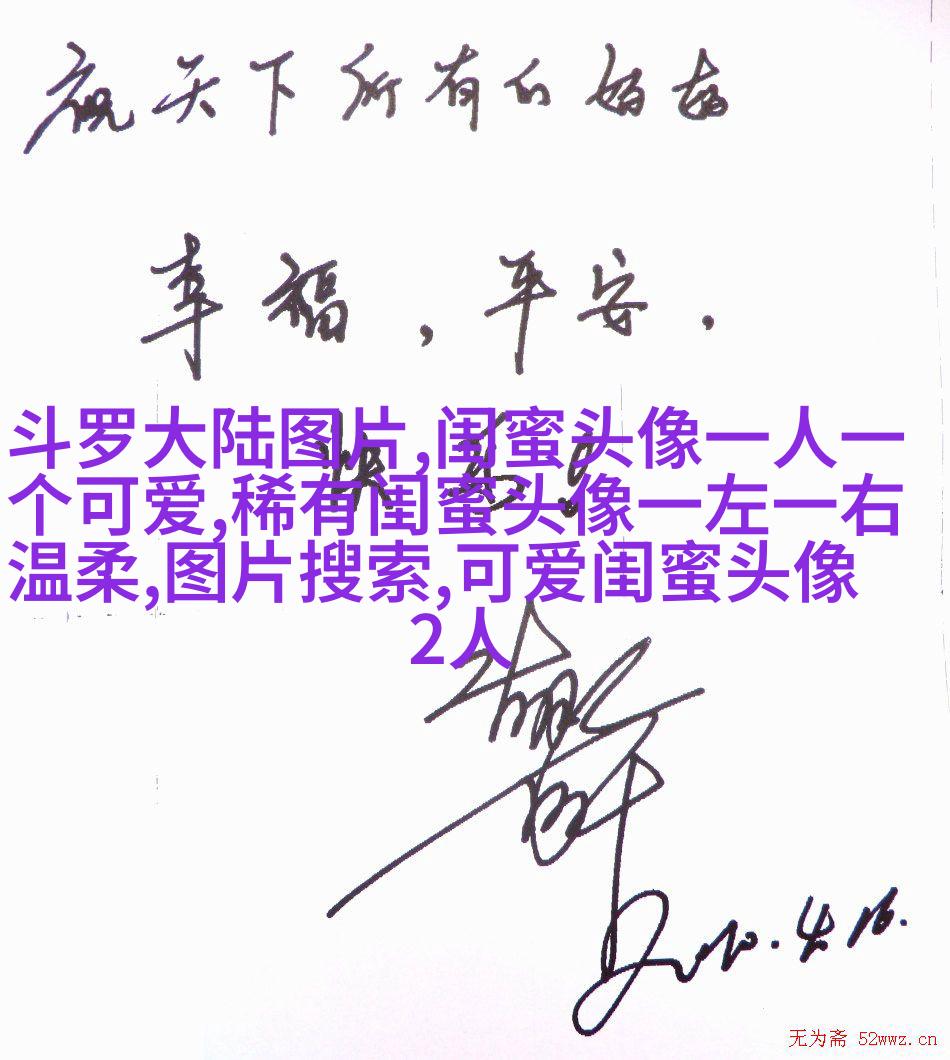 祝天下所有的妈妈
幸福，平安，
快乐！
斗罗大陆图片,闺蜜头像一人一
个可爱,稀有闺蜜头像一左一右
温柔,图片搜索,可爱闺蜜头像
2人
2010.4.16.
无为斋 52wwz.cn